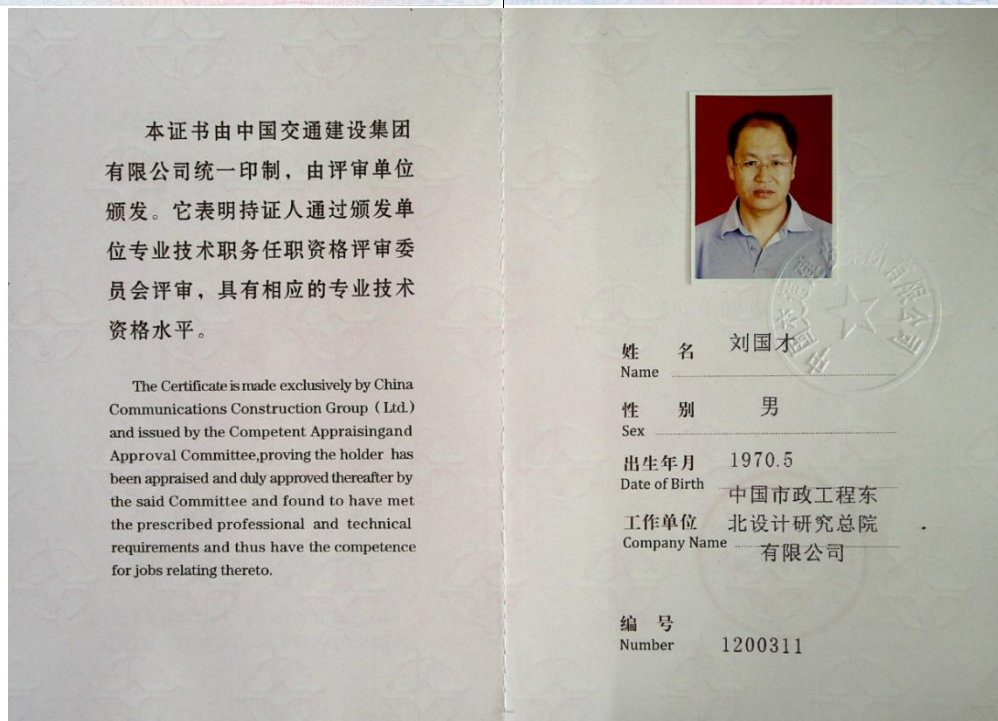 本证书由中国交通建设集团
有限公司统一印制，由评审单位
颁发。它表明持证人通过颁发单
位专业技术职务任职资格评审委
员会评审，具有相应的专业技术
资格水平。
The Certificate is made exclusively by China
Communications Construction Group ( Ltd.)
and issued by the Competent Appraisingand
Approval Committee,proving the holder has
been appraised and duly approved thereafter by
the said Committee and found to have met
the prescribed professional and technical
requirements and thus have the competence
for jobs relating thereto.
姓 名 刘国才
Name
性 别 男
Sex
出生年月 1970.5
Date of Birth
中国市政工程东
工作单位 北设计研究总院
Company Name 有限公司
编 号
Number 1200311